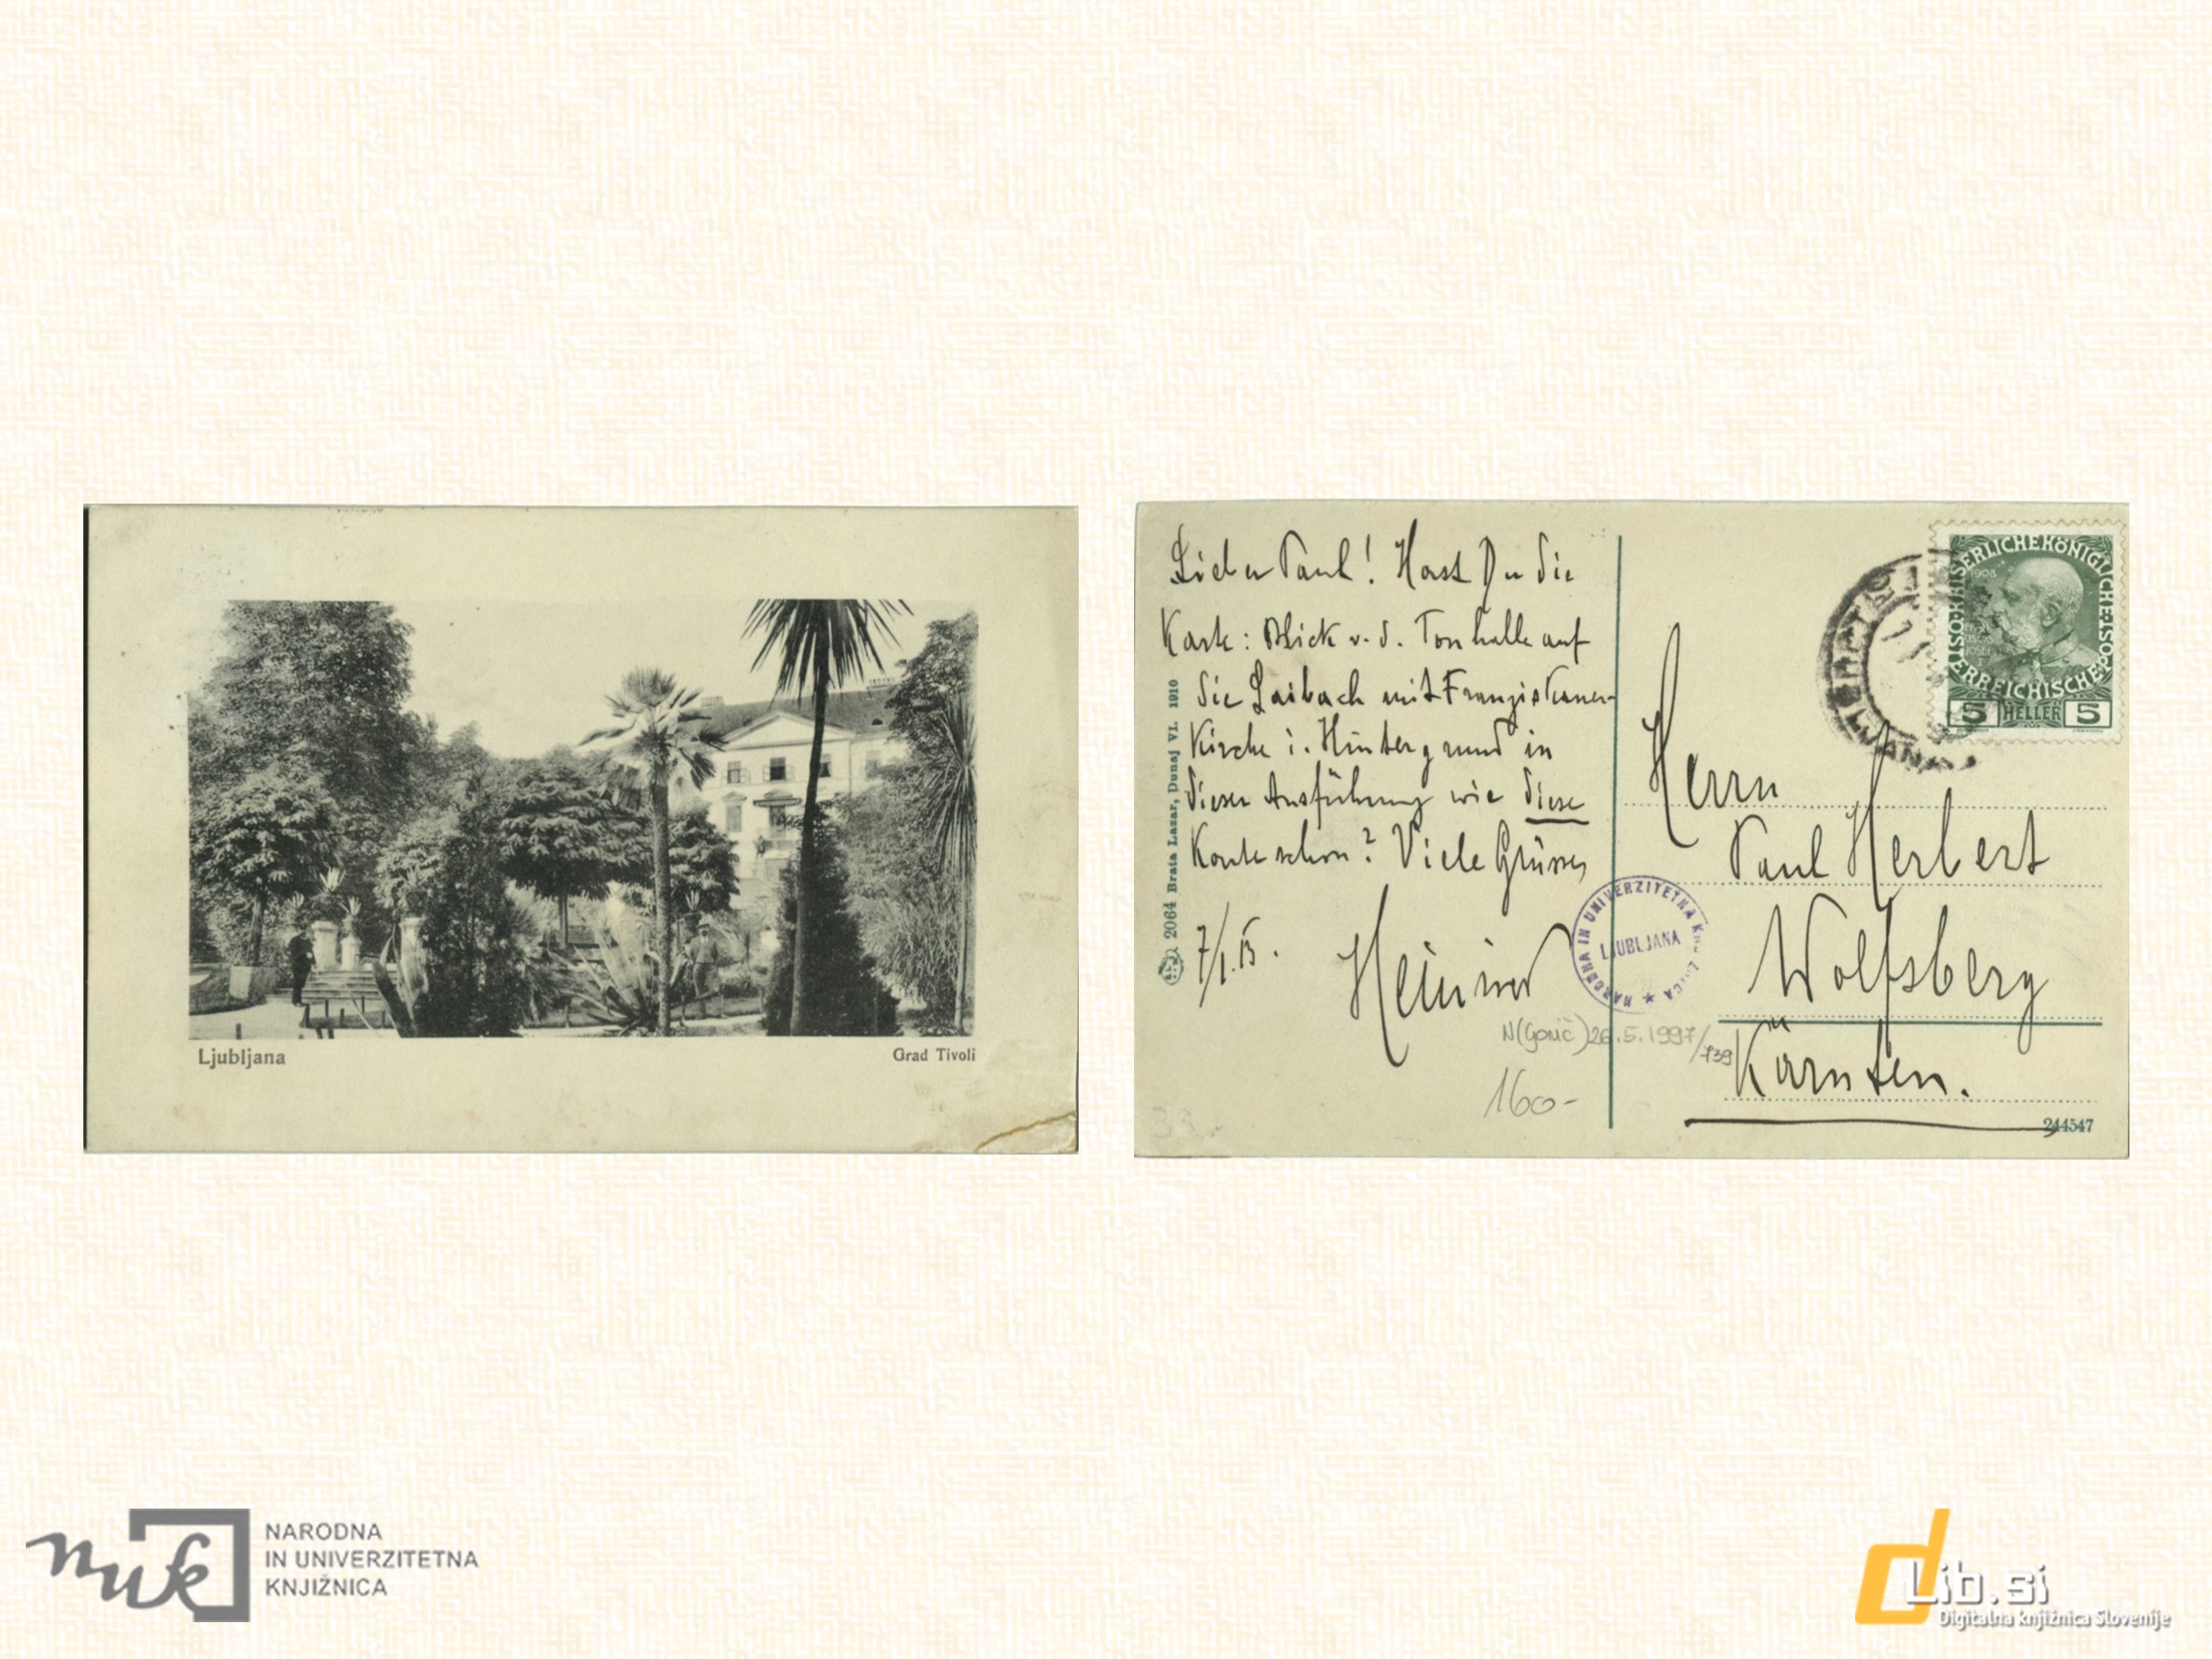 Ljubljana
Grad Tivoli
Lieber Paul! Hast Du die
Karte: Blick v. d. Tonhalle auf
die Laibach mit Franziskaner-
Kirche i. Hintergrund in
dieser Ausführung wie diese
Karte schon? Viele Grüsse,
7/I. 13.
2064 Brata Lasar, Dunaj VI. 1910
KAISERLICHEKÖNIGLICHEPOST
ÖSTERREICHISCHE
1908
5 HELLER 5
Herrn
Paul Herbert
Wolfsberg
Kärnten.
NARODNA IN UNIVERZITETNA KNJIŽNICA
LJUBLJANA
26.5.1997/739
160-
244547
nuk
NARODNA
IN UNIVERZITETNA
KNJIŽNICA
dLib.si
Digitalna knjižnica Slovenije